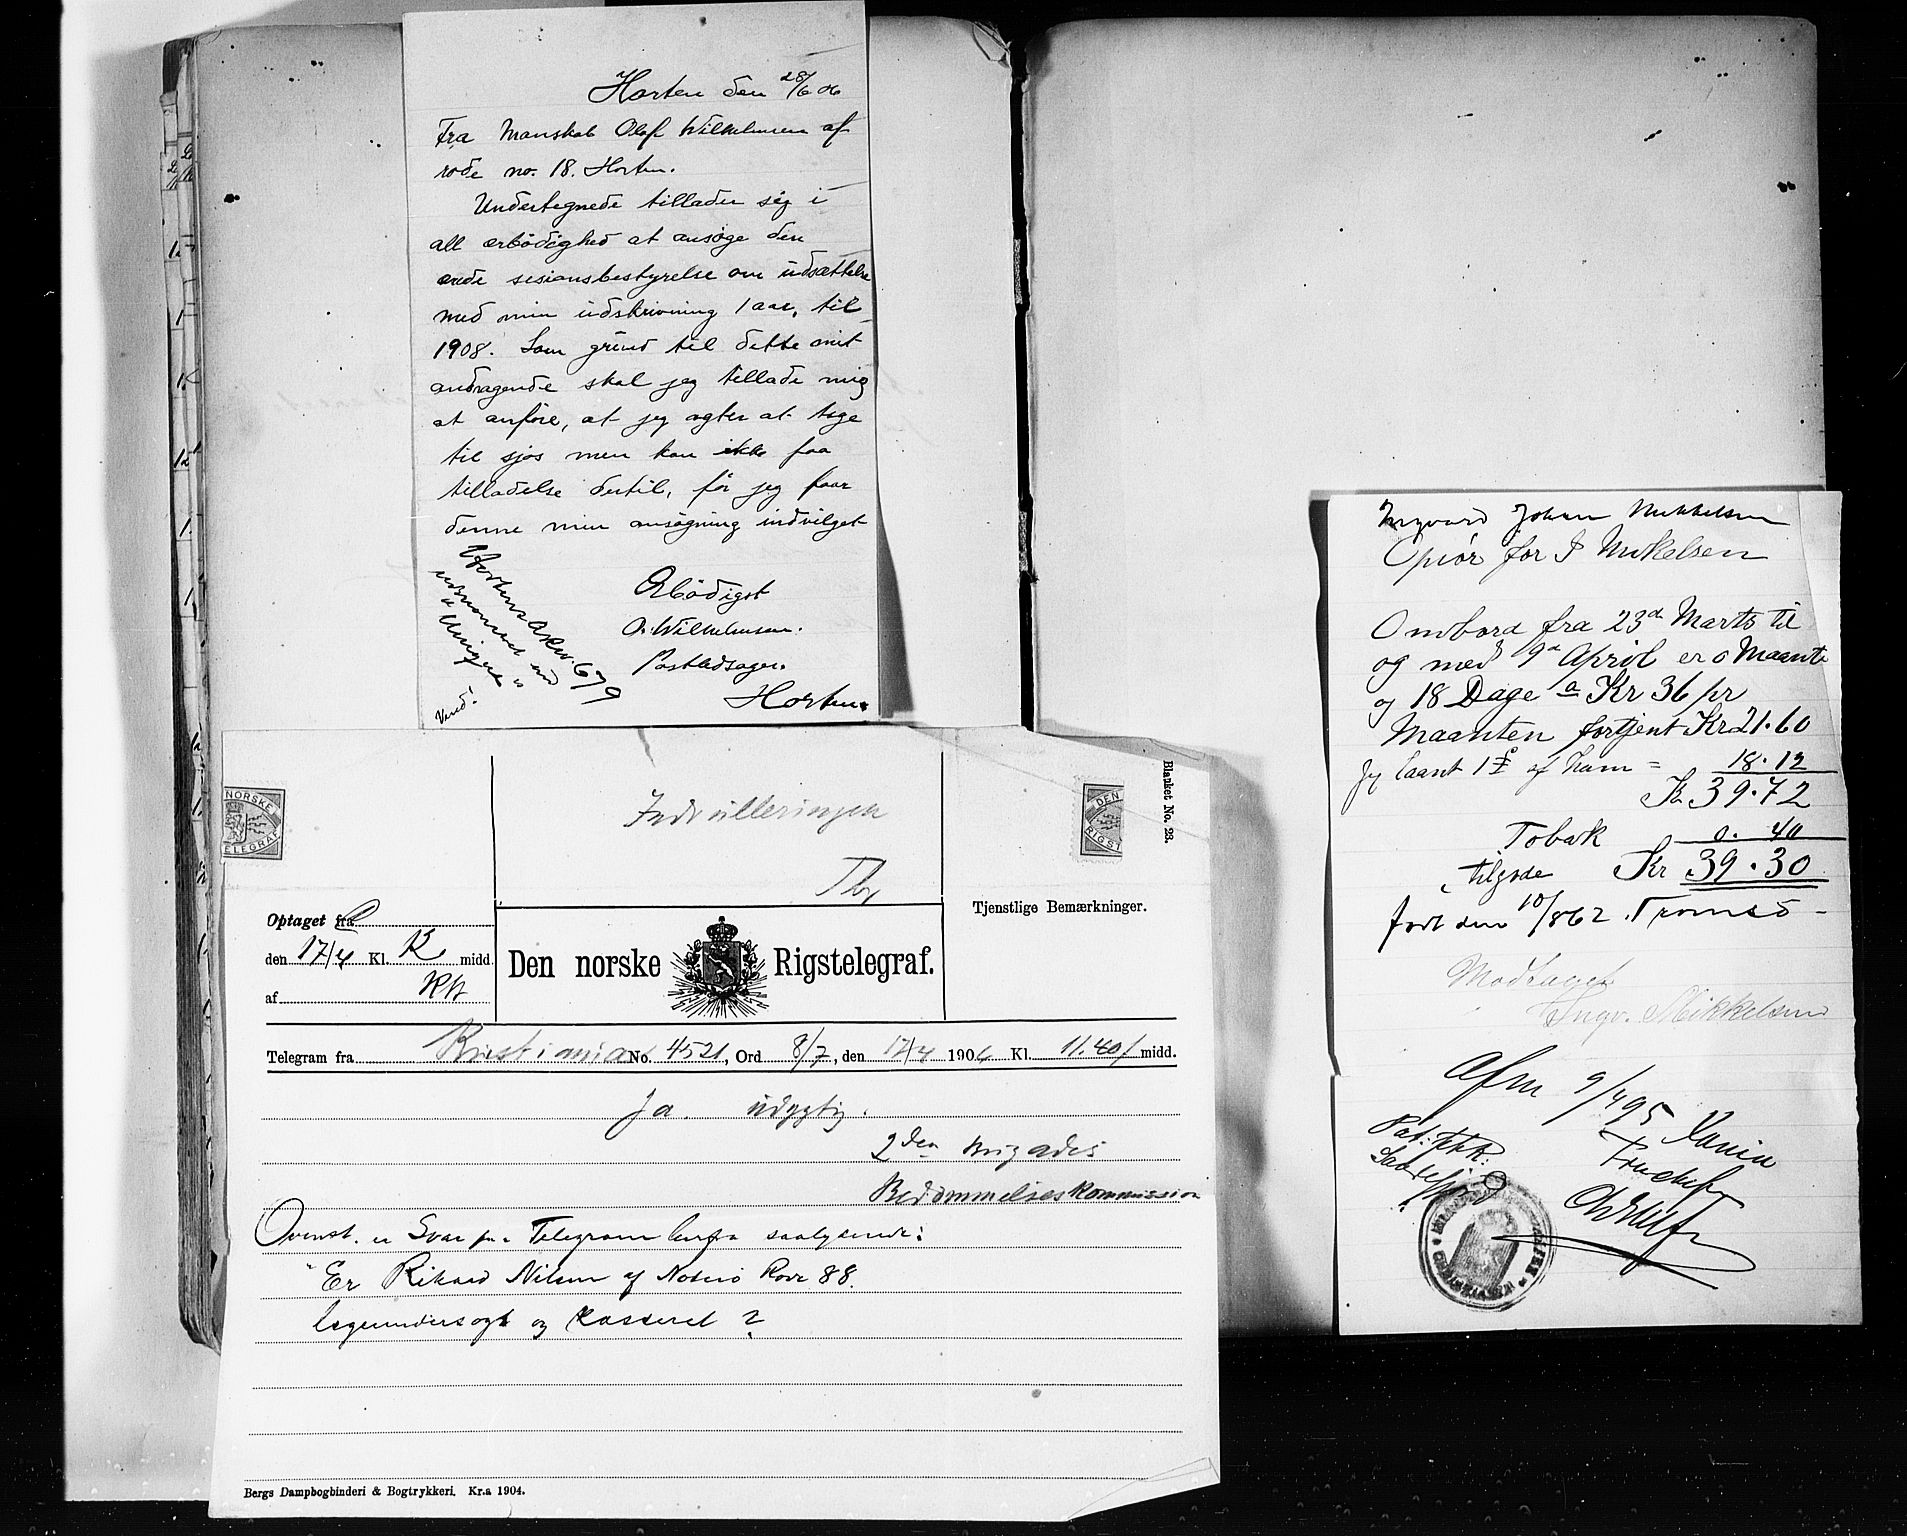 Horten den 28/6 06
Fra Manskab Olaf Wilhelmsen af
rode no. 18. Horten.
Undertegnede tillader sig i
all ærbödighed at ansøge den
ærede sesionsbestyrelse om üdsættelse
med min üdskrivning 1 aar, til
1908. Som gründ til dette mit
andragende skal jeg tillade mig
at anföre, at jeg agter at tage
til sjøs men kan ikke faa
tilladelse dertil, för jeg faar
denne min ansøgning indvilget
Ærbödigst
O. Wilhelmsen.
Postbüdsager.
Horten.
679
Vend.
NORSKE
TELEGRAF
DEN
RIGST
Blanket No. 23.
Indrulleringen
Optaget fra
den 17/4 Kl. K midd.
af
Den norske Rigstelegraf.
Tjenstlige Bemærkninger.
Telegram fra Kristiania No. 4521, Ord 8/7, den 17/4 1906 Kl. 11.40 midd.
Ja. udygtig.
2den Brigades
Bedömmelseskommission
Ovenst. er Svar paa Telegram herfra saalydende:
"Er Rikard Nilsen af Nøterø Rode 88.
lægeundersøgt og kasseret?
Bergs Dampbogbinderi & Bogtrykkeri. Kr.a 1904.
Ingvard Johan Mikkelsen
Opiör for I Mikelsen
Ombord fra 23de Marts til
og med 9de April er 0 Maante
og 18 Dage a Kr 36 pr
Maanten fortjent Kr 21.60
Jeg laant 1 £ af ham = 18.12
Kr 39.72
Tobak 0.40
tilgode Kr 39.30
född den 10/862. Tromsö
Modtaget
Ingv. Mikkelsen
Afm 9/4 95